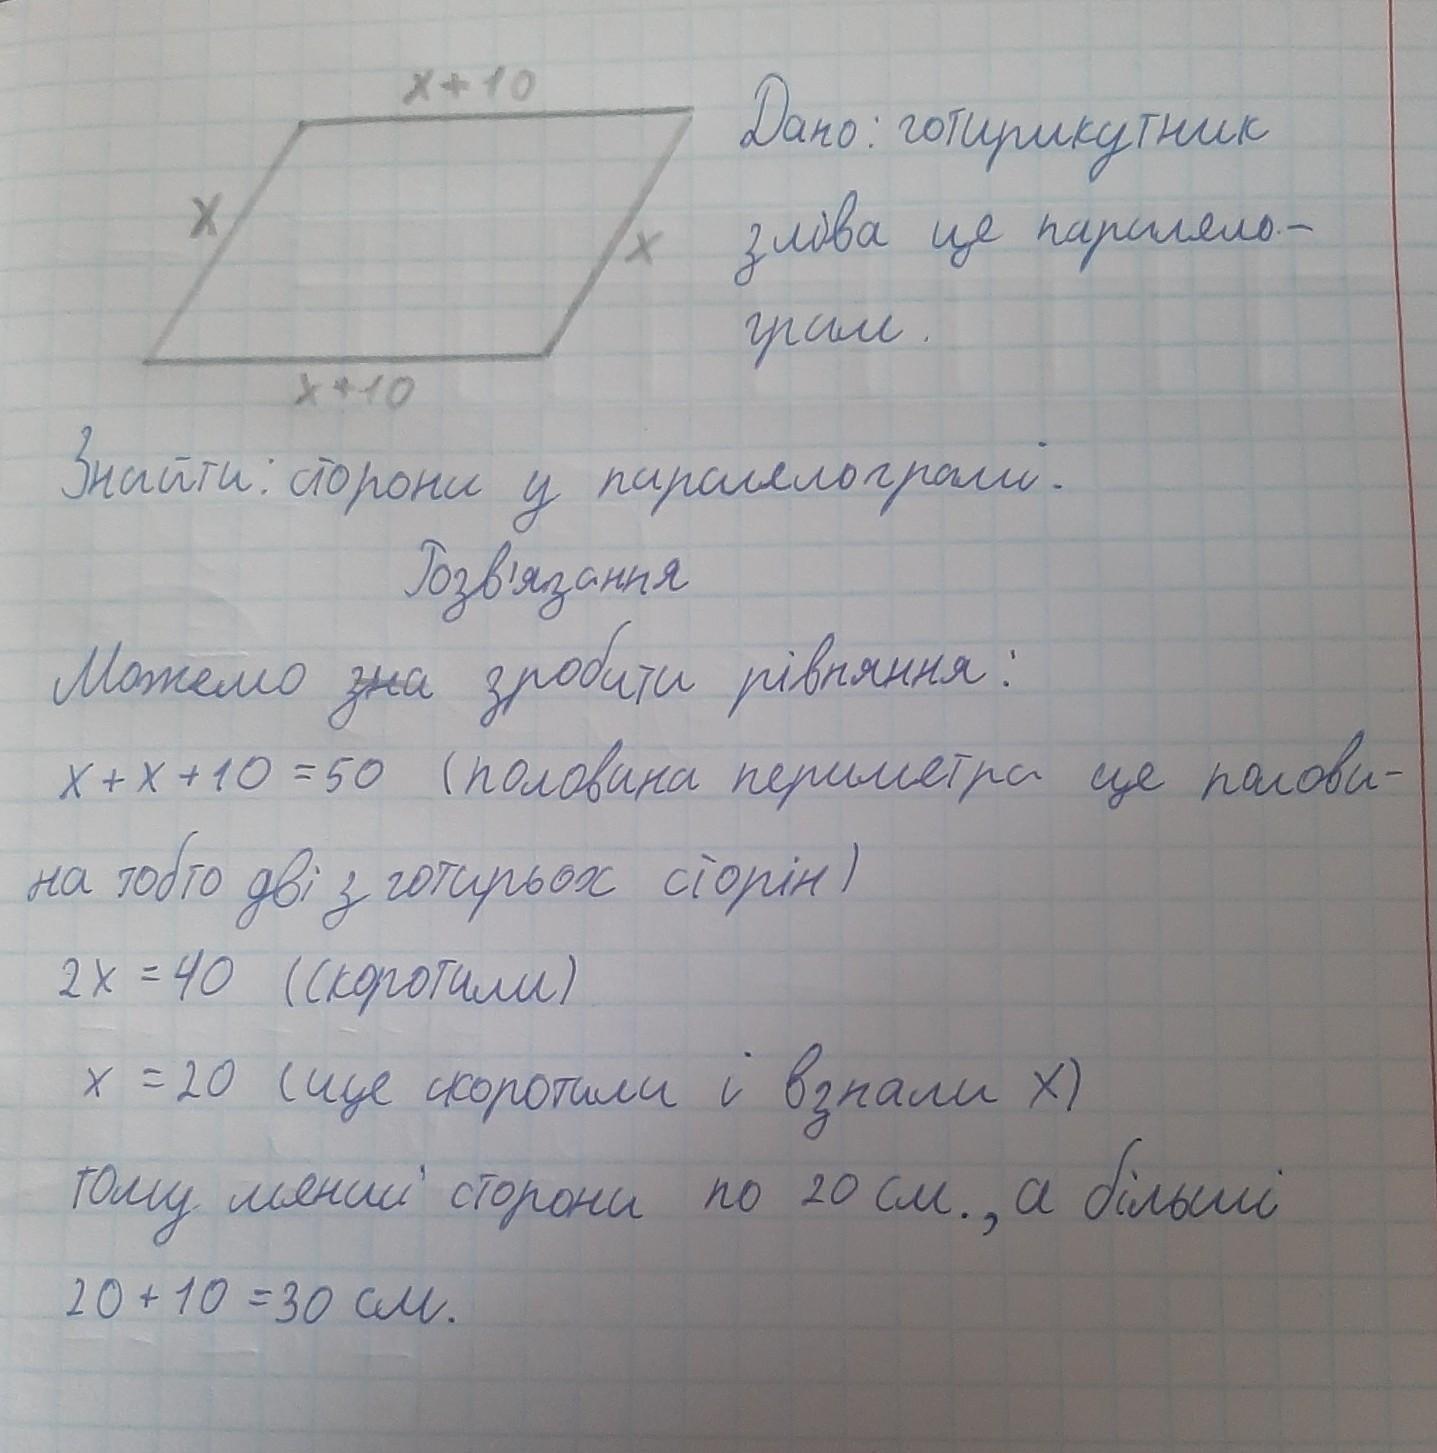 x+10
x
x
x+10
Дано: готирикутник
зліва це паралело-
грам.
Знайти: сторони у паралелограмі.
Розв'язання
Можемо зна зробити рівняння:
x+x+10=50 (половина периметра це полови-
на тобто дві з готирьох сторін)
2x=40 (скоротили)
x=20 (ще скоротили і взнали x)
тому менші сторони по 20 см., а більші
20+10=30 см.